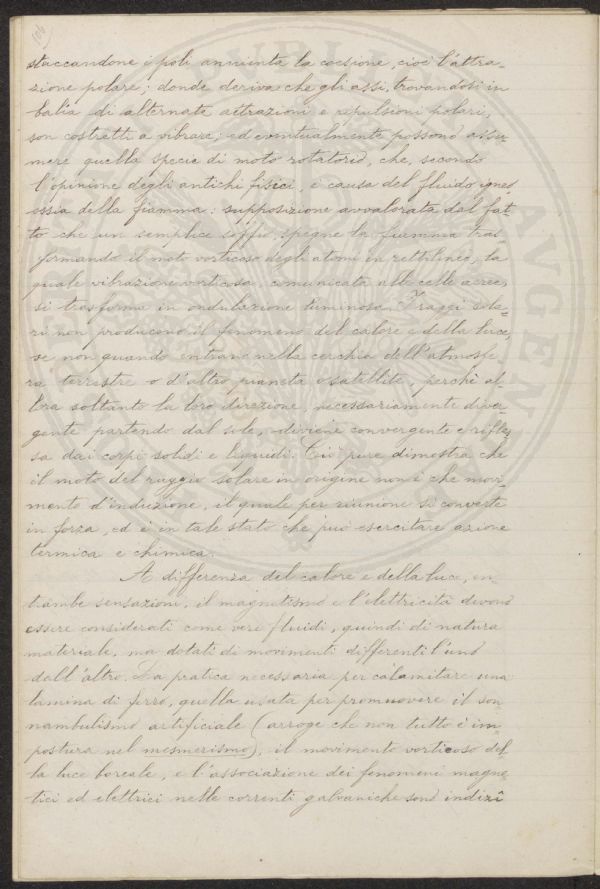 106
staccandone i poli annienta la coesione, cioè l'attra-
zione polare; donde deriva che gli assi, trovandosi in
balìa di alternate attrazioni e repulsioni polari,
son costretti a vibrare; ed eventualmente possono assu-
mere quella specie di moto rotatorio, che, secondo
l'opinione degli antichi fisici, è causa del fluido igneo
ossia della fiamma: supposizione avvalorata dal fat-
to che un semplice soffio spegne la fiamma tras-
formando il moto vorticoso degli atomi in rettilineo, la
quale vibrazione vorticosa, comunicata alle celle aeree,
si trasforma in ondulazione luminosa. I raggi sola-
ri non producono il fenomeno del calore e della luce,
se non quando entrano nella cerchia dell'atmosfe-
ra terrestre o d'altro pianeta o satellite, perchè al-
lora soltanto la loro direzione, necessariamente diver-
gente partendo dal sole, diviene convergente e rifles-
sa dai corpi solidi e liquidi. Ciò pure dimostra che
il moto del raggio solare in origine non è che mo-
mento d'induzione, il quale per riunione si converte
in forza, ed è in tale stato che può esercitare azione
termica e chimica.
A differenza del calore e della luce, en-
trambe sensazioni, il magnetismo e l'elettricità devono
essere considerati come veri fluidi, quindi di natura
materiale, ma dotati di movimenti differenti l'uno
dall'altro. La pratica necessaria per calamitare una
lamina di ferro, quella usata per promuovere il son-
nambulismo artificiale (arroge che non tutto è im-
postura nel mesmerismo), il movimento vorticoso del-
la luce boreale, e l'associazione dei fenomeni magne-
tici ed elettrici nelle correnti galvaniche sono indizî